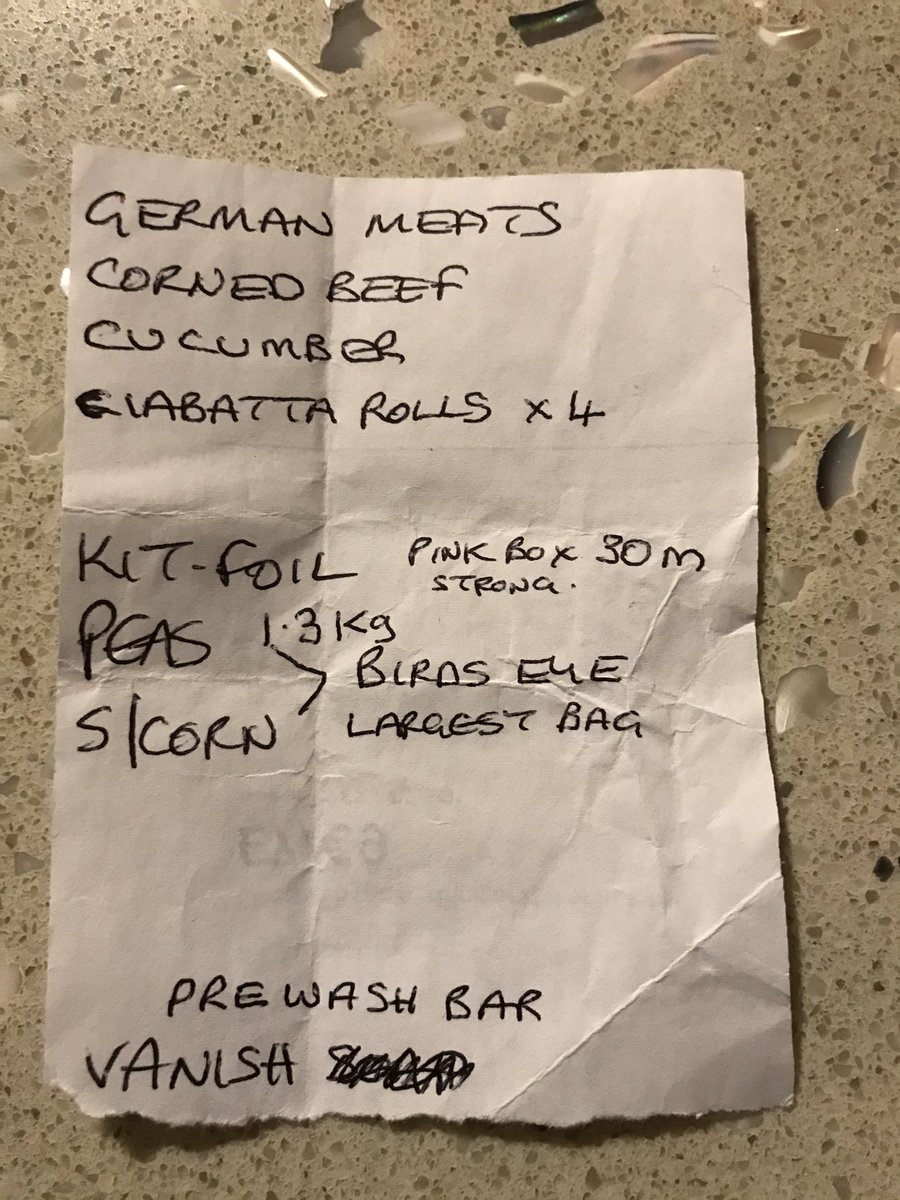 GERMAN MEATS
CORNED BEEF
CUCUMBER
CIABATTA ROLLS x 4
KIT-FOIL PINK BOX 30m
STRONG.
PEAS 1.3 Kg
BIRDS EYE
S/CORN LARGEST BAG
PREWASH BAR
VANISH